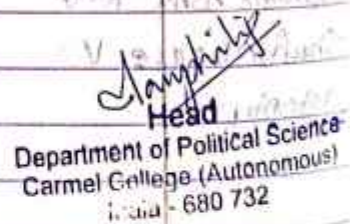 Head
Department of Political Science
Carmel College (Autonomous)
- 680 732